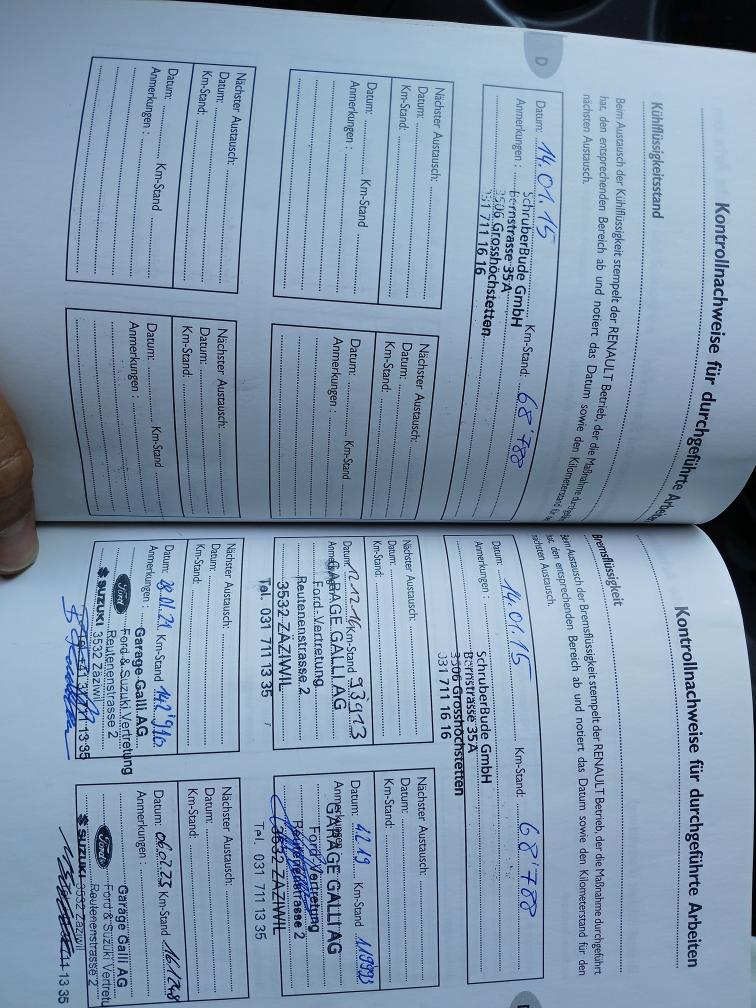 Kontrollnachweise für durchgeführte Arbeiten
Kühlflüssigkeitsstand
Beim Austausch der Kühlflüssigkeit stempelt der RENAULT Betrieb, der die Maßnahme durchgeführt
hat, den entsprechenden Bereich ab und notiert das Datum sowie den Kilometerstand für
nächsten Austausch.
D
Datum: 14.01.15 Km-Stand: 68'788
Anmerkungen :
SchruberBude GmbH
Bernstrasse 35A
3506 Grosshöchstetten
031 711 16 16
Nächster Austausch:
Datum:
Km-Stand:
Datum: Km-Stand
Anmerkungen :
Nächster Austausch:
Datum:
Km-Stand:
Datum: Km-Stand
Anmerkungen :
Nächster Austausch:
Datum:
Km-Stand:
Datum: Km-Stand
Anmerkungen :
Nächster Austausch:
Datum:
Km-Stand:
Datum: Km-Stand
Anmerkungen :
Kontrollnachweise für durchgeführte Arbeiten
Bremsflüssigkeit
Beim Austausch der Bremsflüssigkeit stempelt der RENAULT Betrieb, der die Maßnahme durchgeführt
hat, den entsprechenden Bereich ab und notiert das Datum sowie den Kilometerstand für den
nächsten Austausch.
Datum: 14.01.15 Km-Stand: 68'788
Anmerkungen :
SchruberBude GmbH
Bernstrasse 35A
3506 Grosshöchstetten
031 711 16 16
Nächster Austausch:
Datum:
Km-Stand:
Datum: 12.12.16 Km-Stand 93913
GARAGE GALLI AG
Ford-Vertretung
Reutenenstrasse 2
3532 ZÄZIWIL
Tel. 031 711 13 35
Nächster Austausch:
Datum:
Km-Stand:
Datum: 4.2.19 Km-Stand 119993
Anmerkungen
GARAGE GALLI AG
Ford-Vertretung
Reutenenstrasse 2
3532 ZÄZIWIL
Tel. 031 711 13 35
Nächster Austausch:
Datum:
Km-Stand:
Datum: 28.01.21 Km-Stand 142'910
Anmerkungen :
Garage Galli AG
Ford Ford & Suzuki Vertretung
Reutenenstrasse 2
SUZUKI 3532 Zäziwil
13 35
Nächster Austausch:
Datum:
Km-Stand:
Datum: 06.02.23 Km-Stand 161248
Anmerkungen :
Garage Galli AG
Ford Ford & Suzuki Vertretu
Reutenenstrasse 2
SUZUKI 3532 Zäziwil
11 13 35